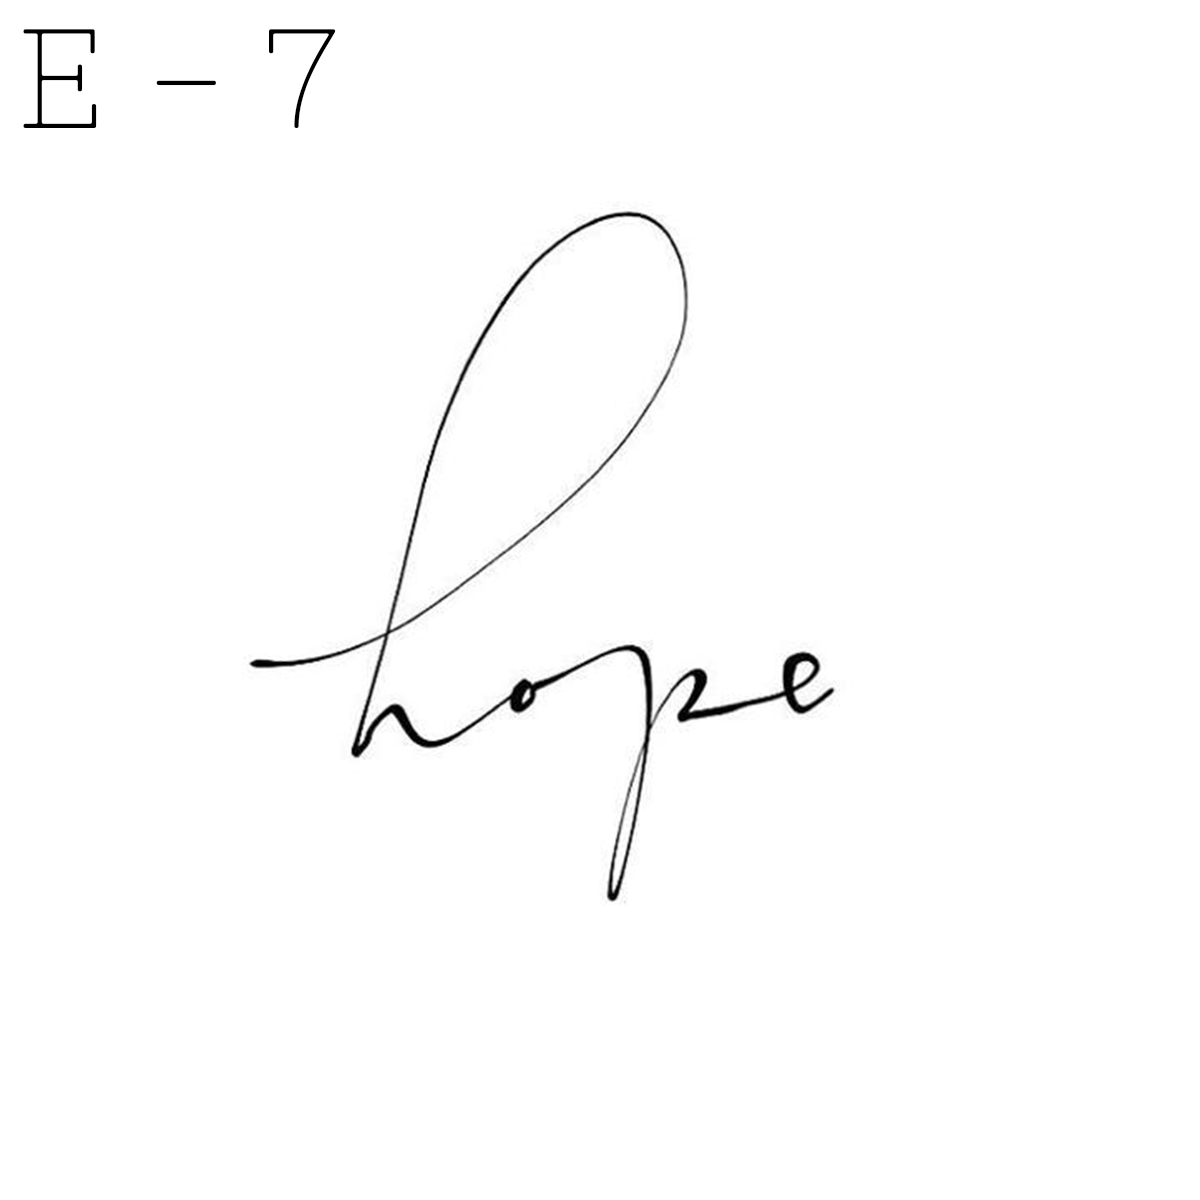 E - 7
hope